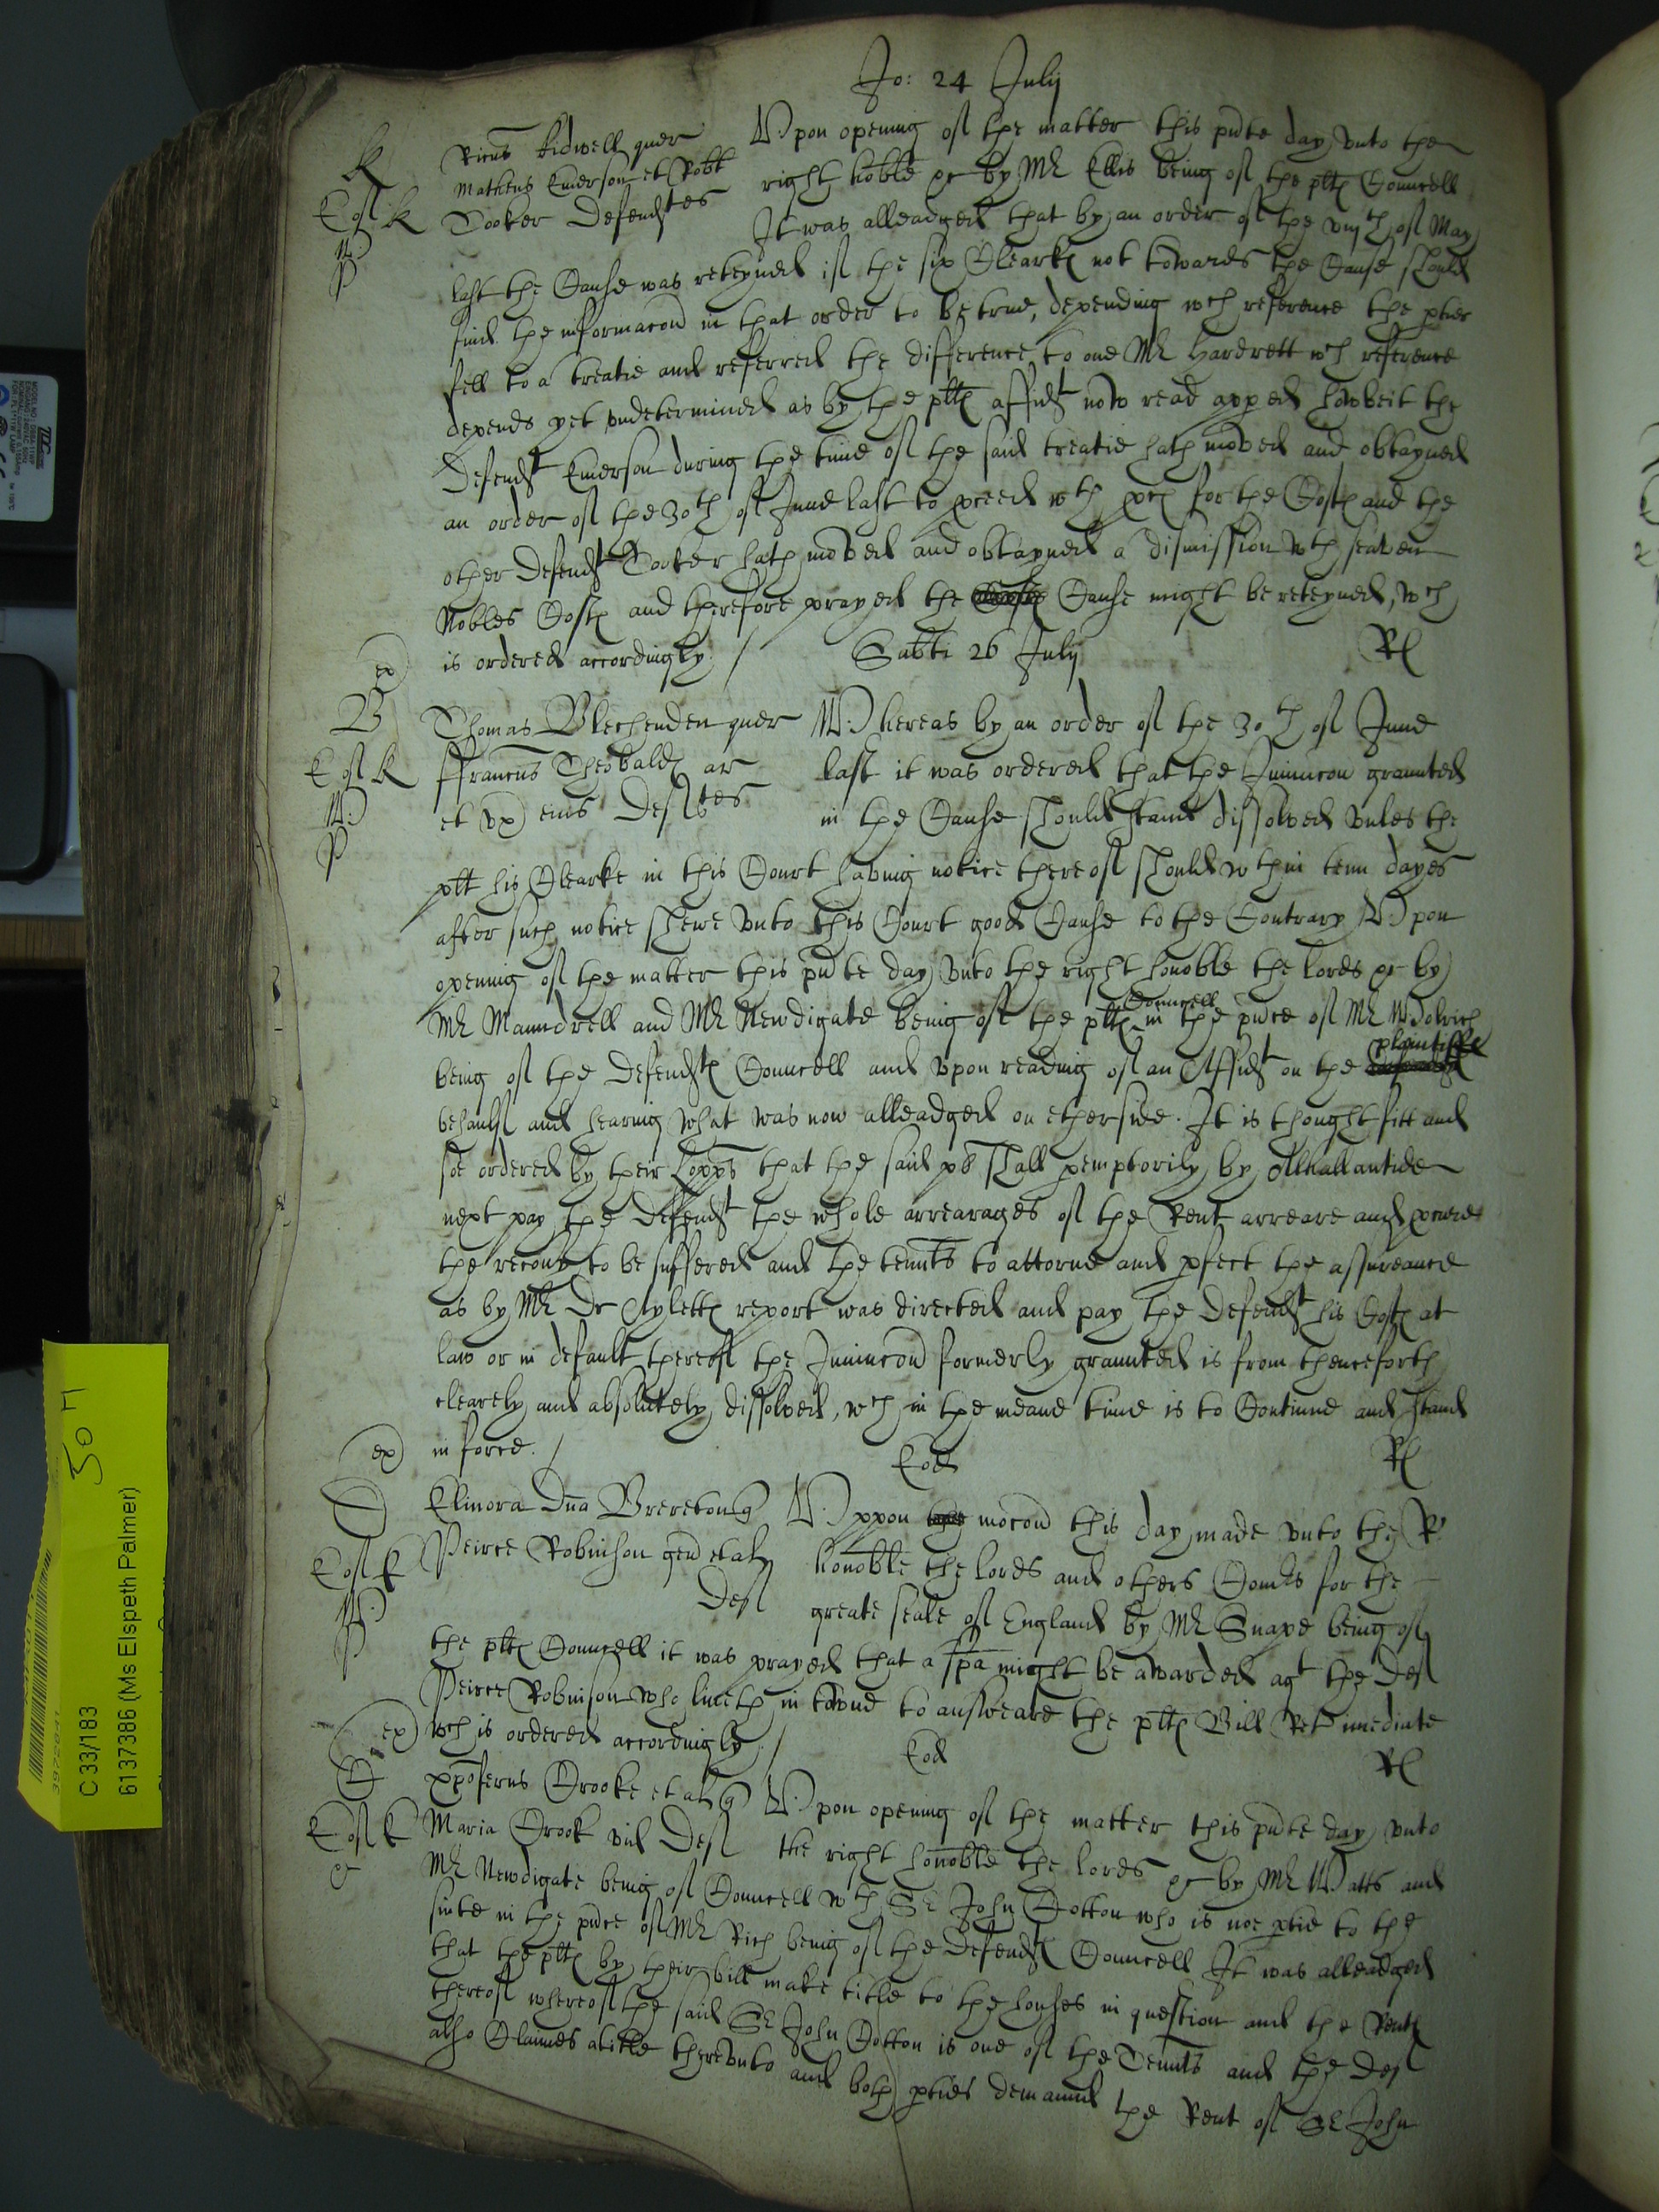 Jo: 24 July
K
Ricus Kidwell quer
Matheus Emerson et Robt
Tooker Defendtes
Vpon opening of the matter this pnte day vnto the
right hoble &c by Mr Ellis being of the pltes Councell
It was alleadged that by an order of the viijth of May
last the Cause was reteyned if the six Clearkes not towards the Cause should
find the informacon in that order to be true, depending wch reference the pties
fell to a treatie and referred the difference to one Mr Hardrett wch reference
depends yet vndetermined as by the pltes affidt now read apped howbeit the
Defendt Emerson during the time of the said treatie hath moved and obtayned
an order of the 30th of June last to pceed wth pces for the Costes and the
other Defendt Tooker hath moved and obtayned a dismission wth seaven
Nobles Costes and therefore prayed the Cause might be reteyned, wch
is ordered accordingly /
Sabti 26 July
Rl
ex
B
Thomas Blechenden quer
ffrancus Theobaldes ar
et vx eius Deftes
Whereas by an order of the 30th of June
last it was ordered that the Iniuncon graunted
in the Cause should stand dissolved vnles the
plt his Clearke in this Court having notice thereof should wthin tenn dayes
after such notice shewe vnto this Court good Cause to the Contrary Vpon
opening of the matter this pnte day vnto the right honoble the lords &c by
Mr Maundrell and Mr Newdigate being of the pltes Councell in the pnce of Mr Woolrich
being of the Defendtes Councell and vpon reading of an Affidt on the plaintiffes
behaulf and hearing what was now alleadged on etherside. It is thought fitt and
soe ordered by their Lopps that the said pl shall pemptorily by Allhallantide
next pay the Defendt the whole arrearages of the Rent arreare and procure
the recouy to be suffered and the tennts to attorne and pfect the assureance
as by Mr Dr Aylettes report was directed and pay the Defendt his Costes at
law or in default thereof the Iniuncon formerly graunted is from thenceforth
clearely and absolutely dissolved, wch in the meane time is to Continue and stand
in force. /
Eod
Rl
ex
Elinora Dna Brereton q
Peirce Robinson gen et al
Def
Vppon mocon this day made vnto the R
honoble the lords and others Comrs for the
greate seale of England by Mr Snape being of
the pltes Councell it was prayed that a spa might be awarded agt the Def
Peirce Robinson who liueth in towne to answeare the pltes Bill Ret imediate
wch is ordered accordingly /
Eod
Rl
ex
C
Xpoferus Crooke et al q
Maria Crook vid Def
Vpon opening of the matter this pnte day vnto
the right honoble the lords &c by Mr Watts and
Mr Newdigate being of Councell wth Sr John Cotton who is noe ptie to the
suite in the pnce of Mr Rich being of the Defendtes Councell It was alleadged
that the pltes by their bill make title to the houses in question and the Rentes
thereof whereof the said Sr John Cotton is one of the Tennts and the Def
also Claimes a title therevnto and both pties demaund the Rent of Sr John
C 33/183
6137386 (Ms Elspeth Palmer)